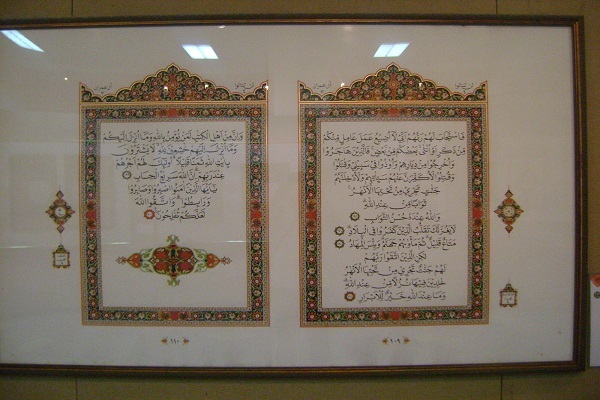 فَاسْتَجَابَ لَهُمْ رَبُّهُمْ أَنِّي لَا أُضِيعُ عَمَلَ عَامِلٍ مِنْكُمْ
مِنْ ذَكَرٍ أَوْ أُنْثَىٰ بَعْضُكُمْ مِنْ بَعْضٍ فَالَّذِينَ هَاجَرُوا
وَأُخْرِجُوا مِنْ دِيَارِهِمْ وَأُوذُوا فِي سَبِيلِي وَقَاتَلُوا
وَقُتِلُوا لَأُكَفِّرَنَّ عَنْهُمْ سَيِّئَاتِهِمْ وَلَأُدْخِلَنَّهُمْ
جَنَّاتٍ تَجْرِي مِنْ تَحْتِهَا الْأَنْهَارُ
ثَوَابًا مِنْ عِنْدِ اللَّهِ
وَاللَّهُ عِنْدَهُ حُسْنُ الثَّوَابِ
لَا يَغُرَّنَّكَ تَقَلُّبُ الَّذِينَ كَفَرُوا فِي الْبِلَادِ
مَتَاعٌ قَلِيلٌ ثُمَّ مَأْوَاهُمْ جَهَنَّمُ وَبِئْسَ الْمِهَادُ
لَٰكِنِ الَّذِينَ اتَّقَوْا رَبَّهُمْ
لَهُمْ جَنَّاتٌ تَجْرِي مِنْ تَحْتِهَا الْأَنْهَارُ
خَالِدِينَ فِيهَا نُزُلًا مِنْ عِنْدِ اللَّهِ
وَمَا عِنْدَ اللَّهِ خَيْرٌ لِلْأَبْرَارِ
وَإِنَّ مِنْ أَهْلِ الْكِتَابِ لَمَنْ يُؤْمِنُ بِاللَّهِ وَمَا أُنْزِلَ إِلَيْكُمْ
وَمَا أُنْزِلَ إِلَيْهِمْ خَاشِعِينَ لِلَّهِ لَا يَشْتَرُونَ
بِآيَاتِ اللَّهِ ثَمَنًا قَلِيلًا أُولَٰئِكَ لَهُمْ أَجْرُهُمْ
عِنْدَ رَبِّهِمْ إِنَّ اللَّهَ سَرِيعُ الْحِسَابِ
يَا أَيُّهَا الَّذِينَ آمَنُوا اصْبِرُوا وَصَابِرُوا
وَرَابِطُوا وَاتَّقُوا اللَّهَ
لَعَلَّكُمْ تُفْلِحُونَ